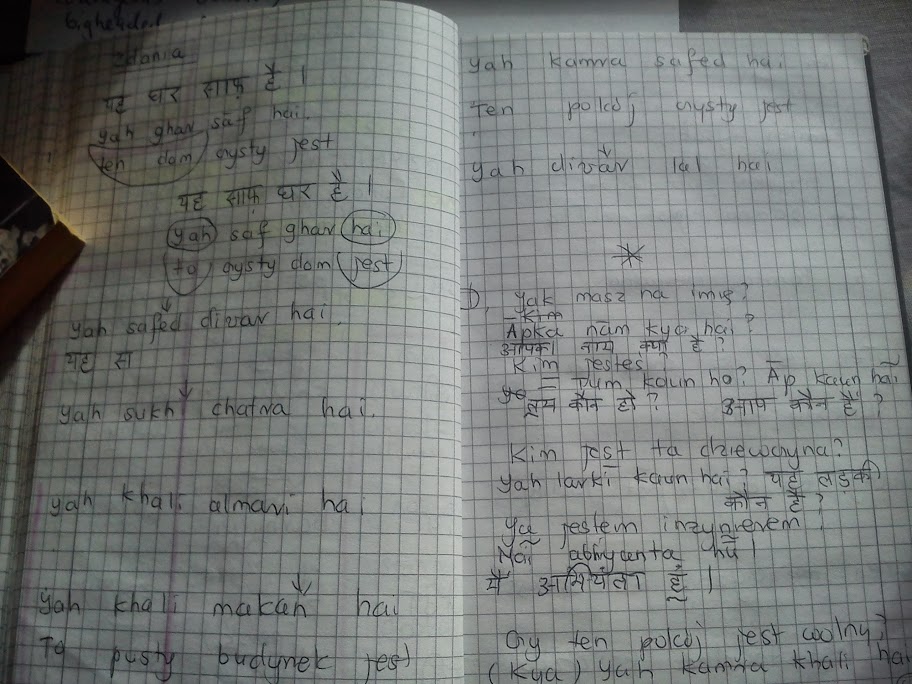 zdania
यह घर साफ़ है ।
yah ghar saf hai.
ten dom czysty jest
यह साफ़ घर है ।
yah saf ghar hai
to czysty dom jest
yah safed divar hai.
यह स
yah sukh chatra hai.
yah khali almari hai
yah khali makan hai
To pusty budynek jest
yah kamra safed hai.
Ten pokój czysty jest
yah divar lal hai
1) Yak masz na imię?
Kim
Āpka nām kya hai?
आपका नाम क्या है ?
Kim jesteś?
Tum kaun ho? Āp kaun haĩ
तुम कौन हो ? आप कौन हैं ?
Kim jest ta dziewczyna?
Yah larkī kaun hai? यह लड़की
कौन है ?
Ya jestem inzynierem.
Maĩ abhiyanta hũ |
मैं अभियंता हूँ ।
Czy ten pokój jest wolny?
(Kya) yah kamra khali hai